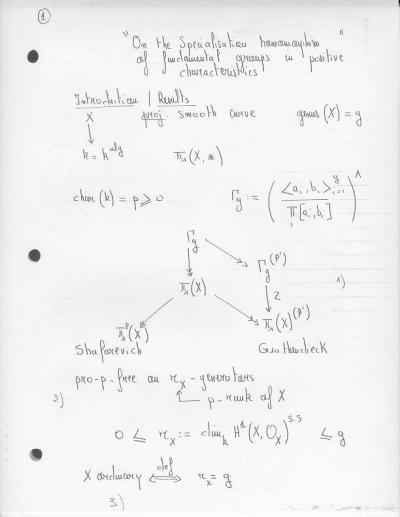 ①
"On the Specialisation homomorphism
of fundamental groups in positive
characteristics"
Introduction / Results
X proj. smooth curve genus (X) = g
k = k^alg π₁(X, *)
char (k) = p ⩾ 0 Γg := ( <aᵢ, bᵢ>ᵍᵢ₌₁ / π[aᵢ, bᵢ] )^
Γg
Γg^(p')
π₁(X) 1)
π₁^p(X) π₁(X)^(p')
Shafarevich Grothendieck
pro-p-free on r_X - generators
2) p-rank of X
0 ≤ r_X := dim_k H¹(X, O_X)^s.s ≤ g
X ordinary ⟺ def r_X = g
3)